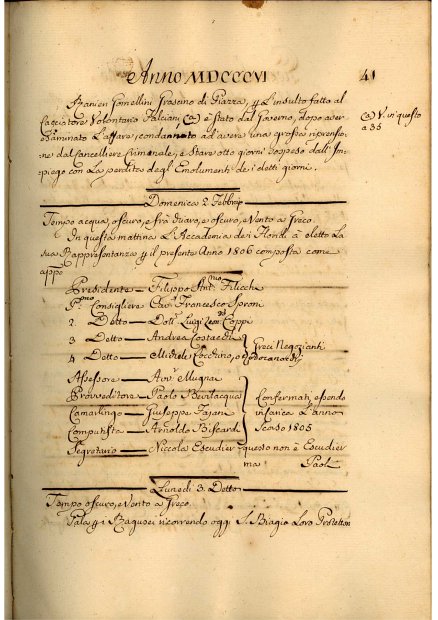 Anno MDCCCVI
41
Ranieri Gonellini Frascino di Piazza, p L'insulto fatto al
Cacciatore Volontario Falciani (a) è stato dal Governo, dopo aver
esaminato L'affare, condannato ad avere una grossa riprensio:
ne dal Cancelliere Criminale, e stare otto giorni sospeso dall'Im:
piego con La perdita degl'Emolumenti de i detti giorni.
(a) V. in questo
a 35
Domenica 2 Febbrajo
Tempo acqua, oscuro, e oscuro, e Vento a Greco.
In questa mattina L'Accademia dei Floridi à eletto La
sua Rappresentanza p il presente Anno 1806 composta come
appo
Presidente — Filippo Ant.mo Filicchi
P.mo Consigliere Cav.r Francesco Sproni
2. Detto — Dott.r Luigi Coppi
3 Detto — Andrea Costachi
4 Detto — Michele
Greci Negozianti
Assessore — Avv.o Mugnai
Provveditore — Paolo Bevilacqua
Camarlingo — Giuseppe Tajani
Computista — Arnoldo Biscardi
Confermati, essendo
in carica L'anno
scaso 1805
Segretario — Niccola Escudier — questo non è Escudier
ma Paoli
Lunedi 3. Detto
Tempo oscuro, e Vento a Greco.
Pala p i Bagusei ricorrendo oggi S. Biagio Loro Protettore